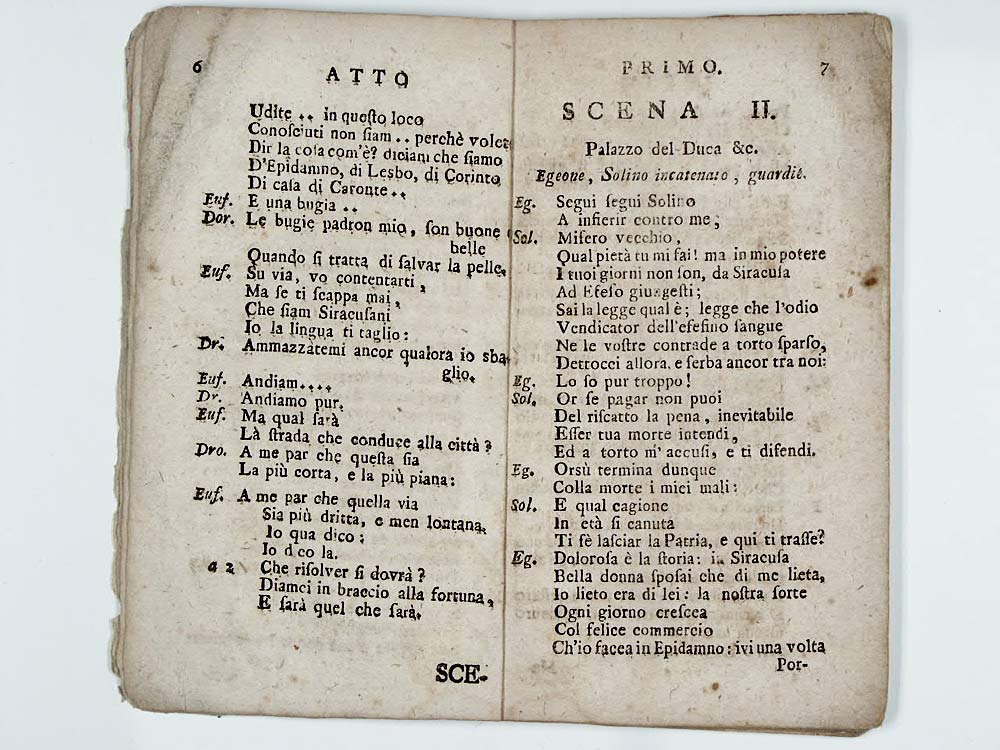 6
ATTO
Udite .. in queſto loco
Conoſciuti non ſiam .. perchè volet
Dir la coſa com'è? diciam che ſiamo
D'Epidamno, di Lesbo, di Corinto
Di caſa di Caronte..
Euf. E una bugia ..
Dor. Le bugie padron mio, ſon buone
belle
Quando ſi tratta di ſalvar la pelle.
Euf. Su via, vo contentarti,
Ma ſe ti ſcappa mai,
Che ſiam Siracuſani
Io la lingua ti taglio:
Dr. Ammazzatemi ancor qualora io sba
glio.
Euf. Andiam....
Dr. Andiamo pur.
Euf. Ma qual ſarà
Là ſtrada che conduce alla città?
Dro. A me par che queſta sia
La più corta, e la più piana:
Euf. A me par che quella via
Sia più dritta, e men lontana.
Io qua dico:
Io dico la.
a 2 Che riſolver ſi dovrà?
Diamci in braccio alla fortuna,
E ſarà quel che ſarà.
SCE-
PRIMO.
7
SCENA II.
Palazzo del Duca &c.
Egeone, Solino incatenato, guardie.
Eg. Segui ſegui Solino
A infierir contro me;
Sol. Miſero vecchio,
Qual pietà tu mi fai! ma in mio potere
I tuoi giorni non ſon, da Siracuſa
Ad Efeſo giungeſti;
Sai la legge qual è; legge che l'odio
Vendicator dell'efeſino ſangue
Ne le voſtre contrade a torto ſparſo,
Dettocci allora, e ſerba ancor tra noi:
Eg. Lo ſo pur troppo!
Sol. Or ſe pagar non puoi
Del riſcatto la pena, inevitabile
Eſſer tua morte intendi,
Ed a torto m'accuſi, e ti difendi.
Eg. Orsù termina dunque
Colla morte i miei mali:
Sol. E qual cagione
In età ſi canuta
Ti fè laſciar la Patria, e qui ti traſſe?
Eg. Doloroſa è la ſtoria: in Siracuſa
Bella donna ſpoſai che di me lieta,
Io lieto era di lei: la noſtra ſorte
Ogni giorno creſcea
Col felice commercio
Ch'io facea in Epidamno: ivi una volta
Por-